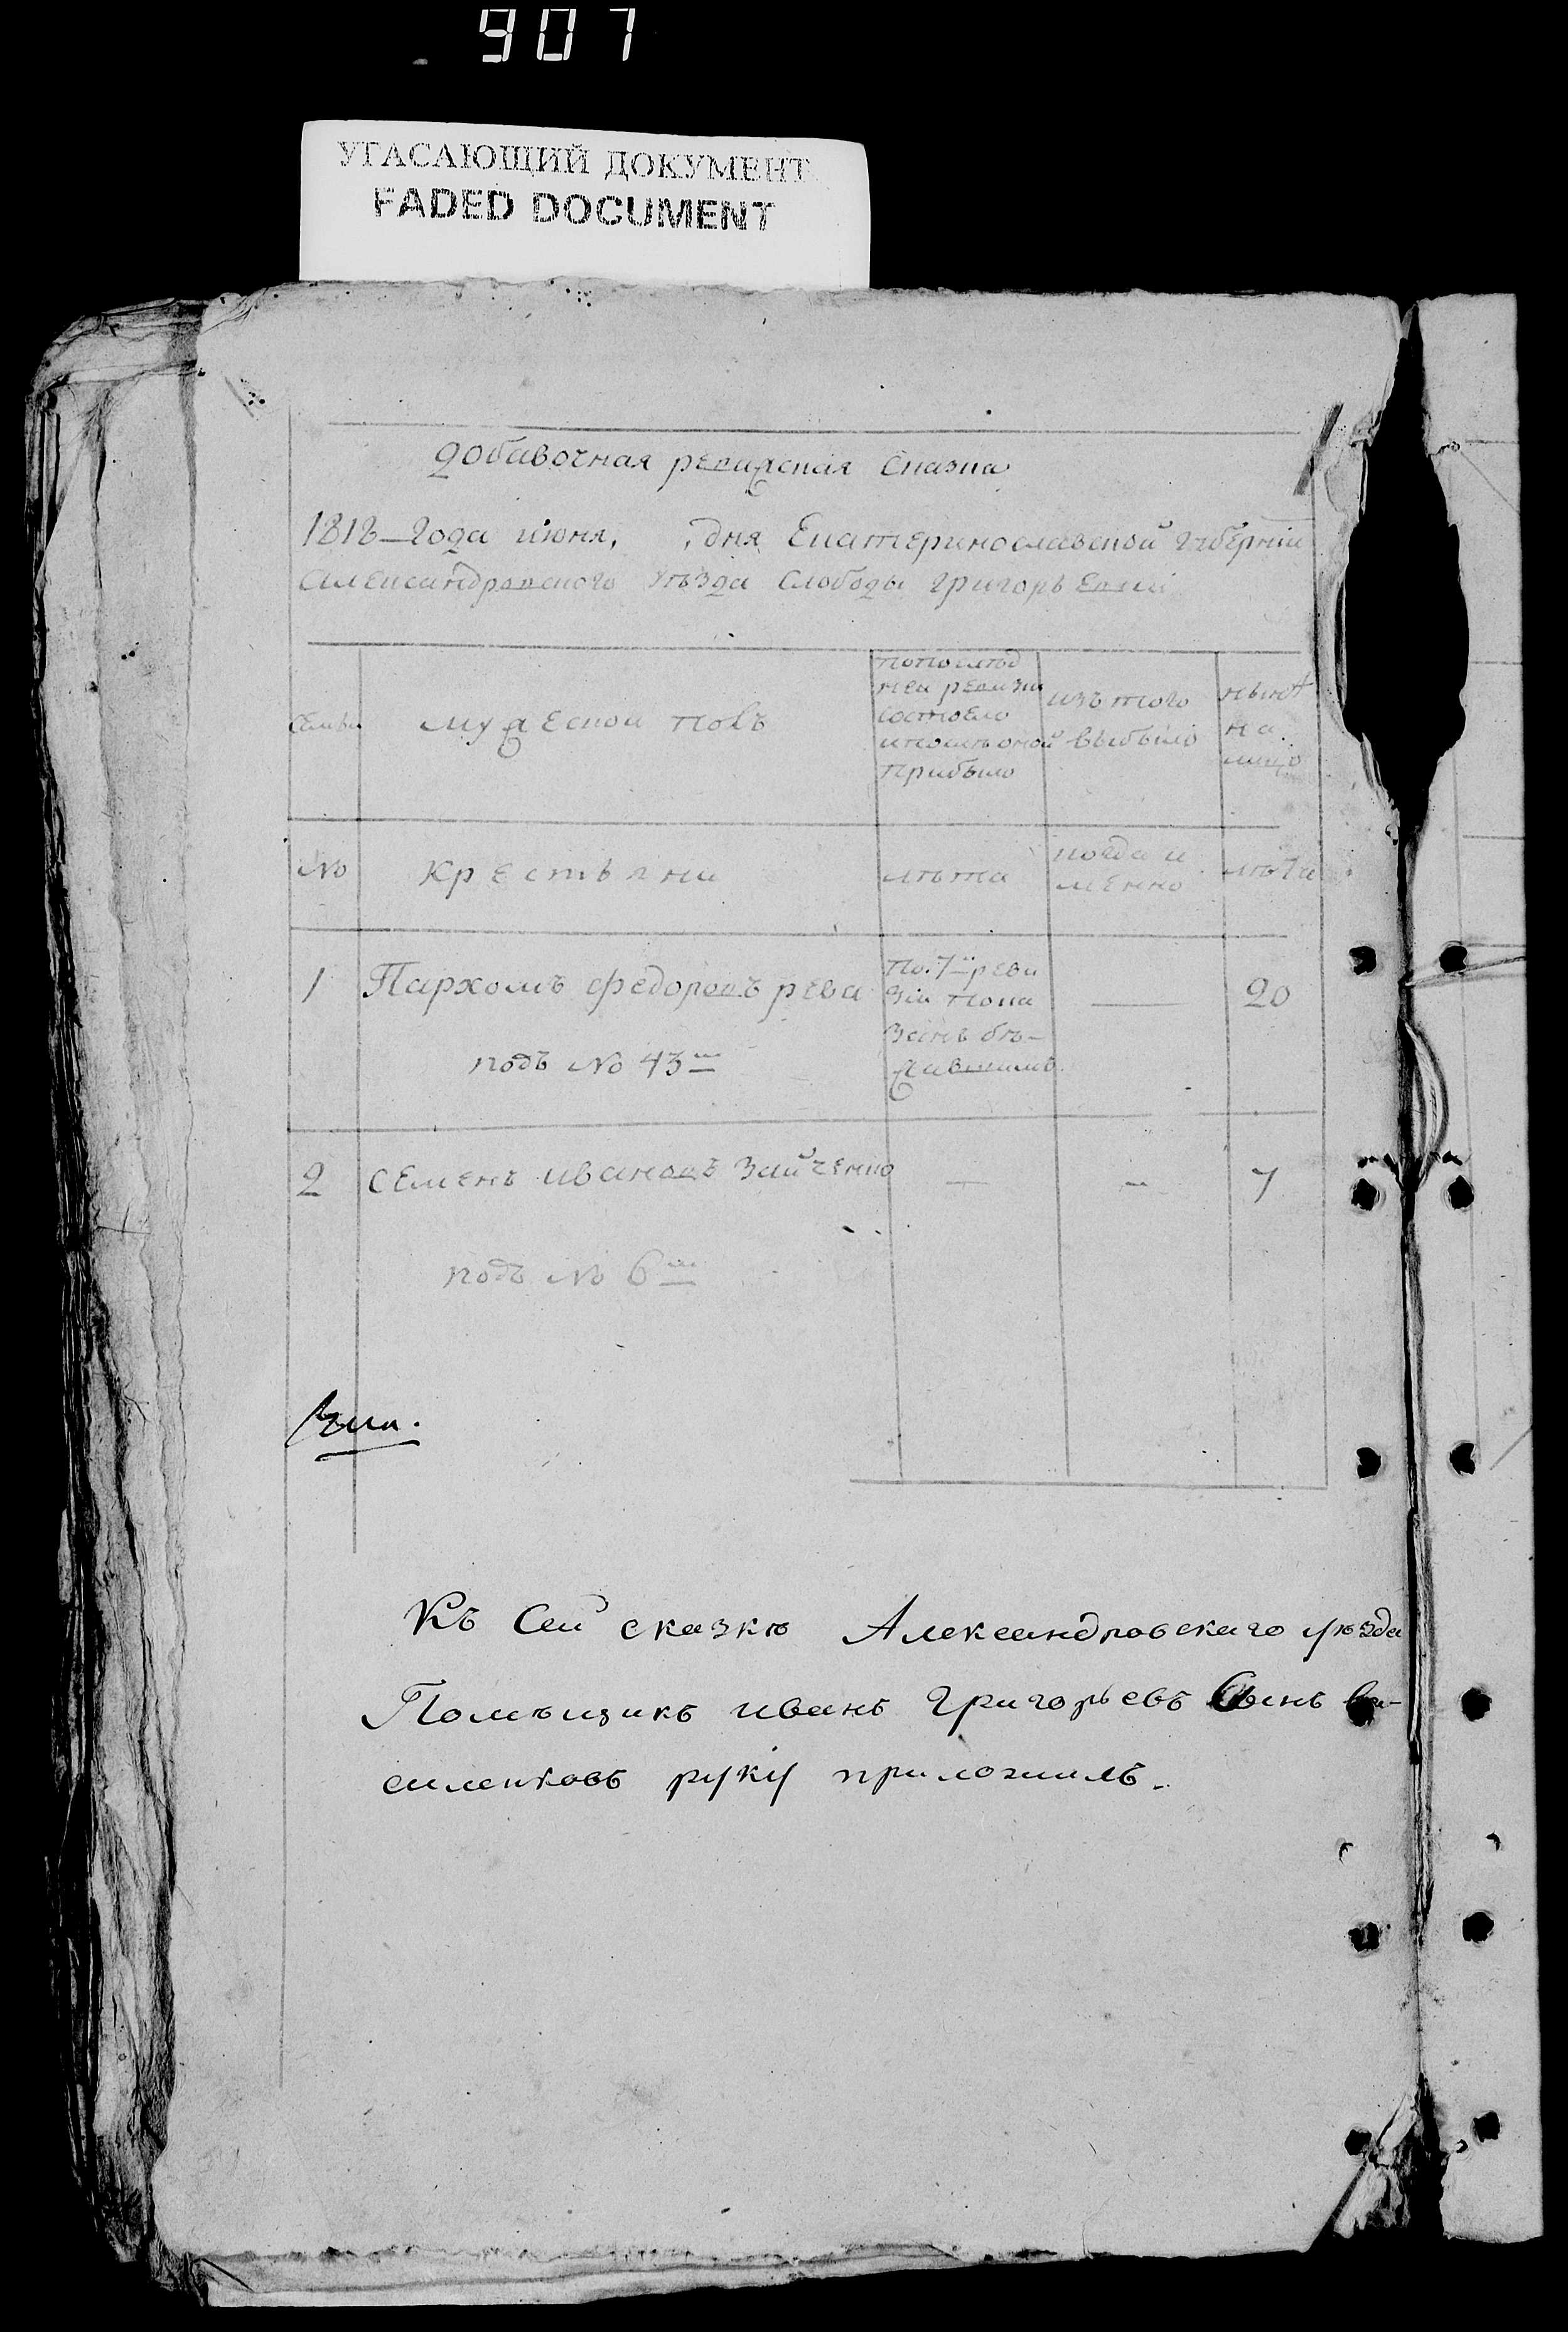 907
УГАСАЮЩИЙ ДОКУМЕНТ
FADED DOCUMENT
добавочная ревизская сказка
1818 года июня, дня Екатеринославской губерніи
Александровского уѣзда слободы григорьевки
Семьи
мужеской полъ
попослѣд
ней ревизи
состояло
ипослѣоной
прибыло
изъ того
выбыло
нынѣ
на
лицо
№
крестьяни
лѣта
когда и
менно
лѣта
1
Пархомъ федоровъ рева
подъ № 43мъ
по. 7й реви
зіи пока
занъ бѣ-
жавшимъ
20
2
семенъ ивановъ зайченко
подъ № 6мъ
7
Къ сей сказкѣ Александровскаго уѣзда
Помѣщикъ иванъ григорьевъ Сынъ ва-
силенковъ руку приложилъ.